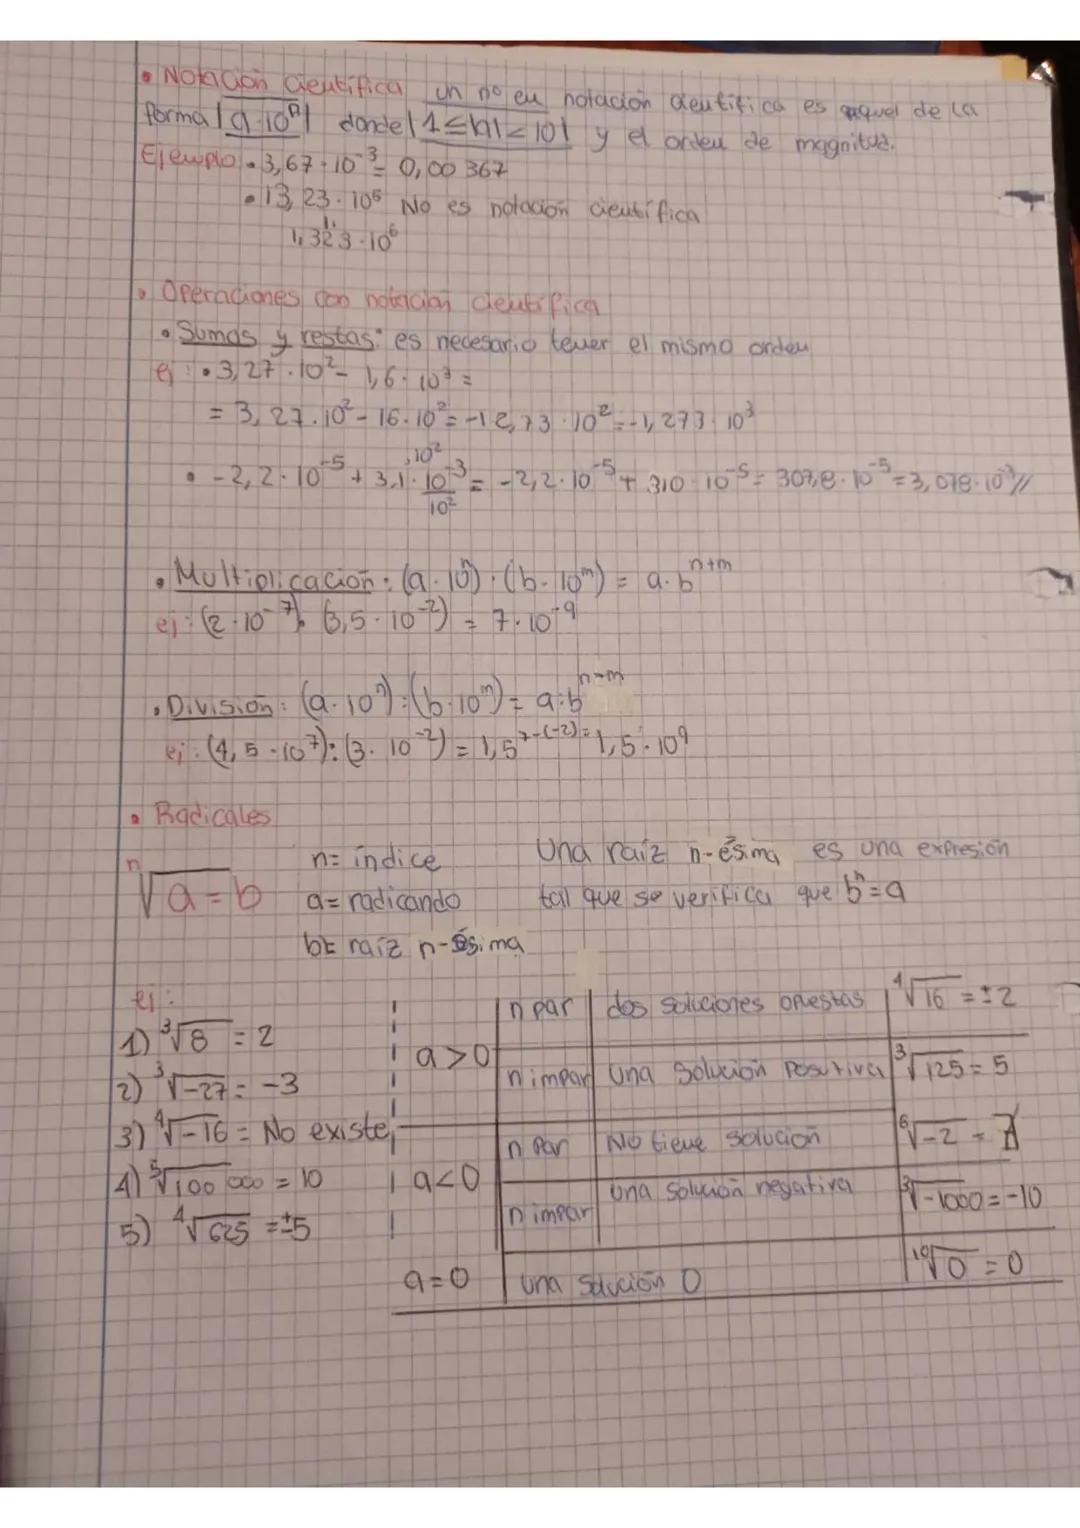 • Notación científica un nº en notación científica es aquel de la
forma |a·10ⁿ| donde |1≤|a|<10| y el orden de magnitud.
Ejemplo • 3,67·10⁻³= 0,00367
• 13,23·10⁵ No es notación científica
1,323·10⁶
• Operaciones con notación científica
• Sumas y restas: es necesario tener el mismo orden
ej: • 3,27·10²- 1,6·10³ =
= 3,27·10²- 16·10²= -12,73·10²= -1,273·10³
• -2,2·10⁻⁵ + 3,1·10⁻³·10²/10² = -2,2·10⁻⁵ + 310·10⁻⁵ = 307,8·10⁻⁵ = 3,078·10⁻³//
• Multiplicación: (a·10ⁿ)·(b·10ᵐ) = a·bⁿ⁺ᵐ
ej: (2·10⁻⁷)·(3,5·10⁻²) = 7·10⁻⁹
• División: (a·10ⁿ):(b·10ᵐ) = a:bⁿ⁻ᵐ
ej: (4,5·10⁷):(3·10⁻²) = 1,5⁷⁻⁽⁻²⁾= 1,5·10⁹
• Radicales
ⁿ√a = b
n= índice
a= radicando
b= raíz n-ésima
Una raíz n-ésima es una expresión
tal que se verifica que bⁿ=a
ej:
1) ³√8 = 2
2) ³√-27 = -3
3) ⁴√-16 = No existe
4) ⁵√100000 = 10
5) ⁴√625 = ±5
a>0 n par dos soluciones opuestas ⁴√16 = ±2
n impar una solución positiva ³√125 = 5
a<0 n par No tiene solución ⁶√-2 = ∄
n impar una solución negativa ³√-1000 = -10
a=0 una solución 0 ¹⁰√0 = 0